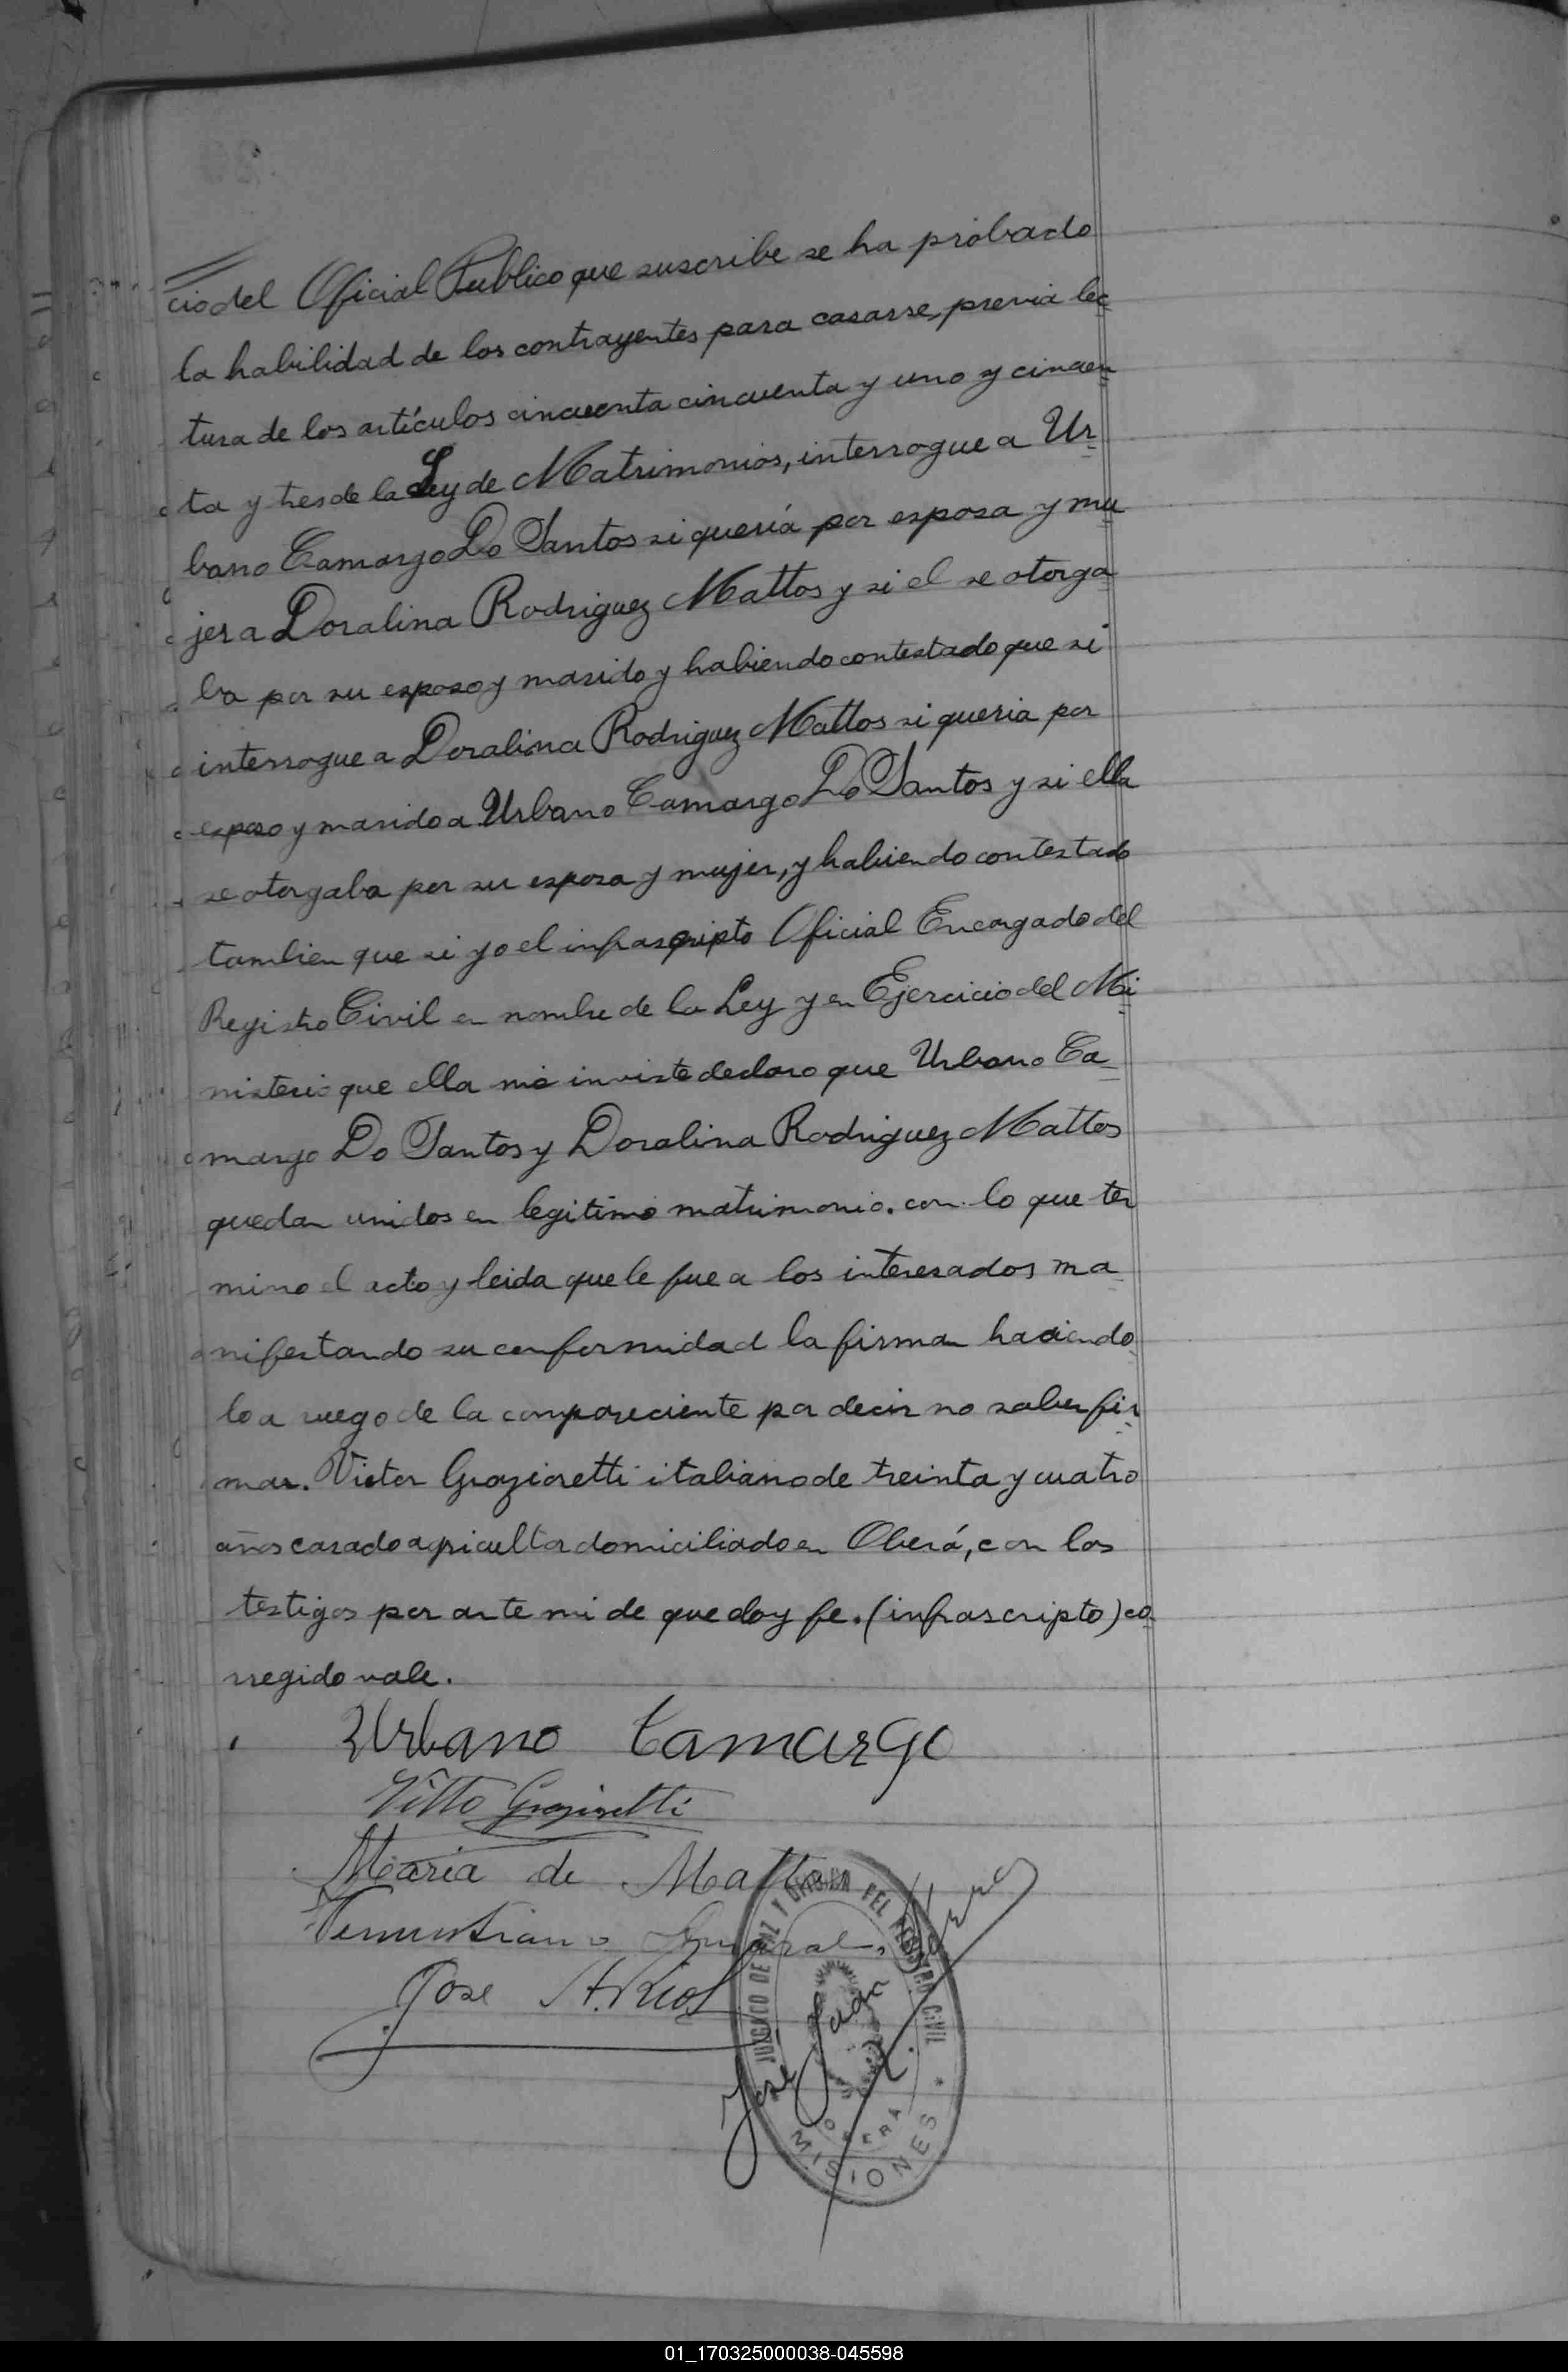 cio del Oficial Publico que suscribe se ha probado
la habilidad de los contrayentes para casarse, previa lec
tura de los artículos cincuenta cincuenta y uno y cincuen
ta y tres de la Ley de Matrimonios, interrogue a Ur
bano Camargo Do Santos si quería por esposa y mu
jer a Doralina Rodriguez Mattos y si el se otorga
ba por su esposo y marido y habiendo contestado que si
interrogue a Doralina Rodriguez Mattos si queria por
esposo y marido a Urbano Camargo Do Santos y si ella
se otorgaba por su esposa y mujer, y habiendo contestado
tambien que si yo el infrascripto Oficial Encargado del
Registro Civil en nombre de la Ley y en Ejercicio del Mi
nisterio que ella me inviste declaro que Urbano Ca
margo Do Santos y Doralina Rodriguez Mattos
quedan unidos en legitimo matrimonio. con lo que ter
mino el acto y leida que le fue a los interesados ma
nifestando su conformidad la firman haciendo
lo a ruego de la compareciente por decir no saber fir
mar. Victor Grazioretti italiano de treinta y cuatro
años casado agricultor domiciliado en Oberá, con los
testigos por ante mi de que doy fe. (infrascripto) co
rregido vale.
Urbano Camargo
Vitto Grazioretti
Maria de Mattos
José A. Rios
José Juan
JUZGADO DE PAZ Y OFICINA DEL REGISTRO CIVIL
OBERA
MISIONES
01_170325000038-045598